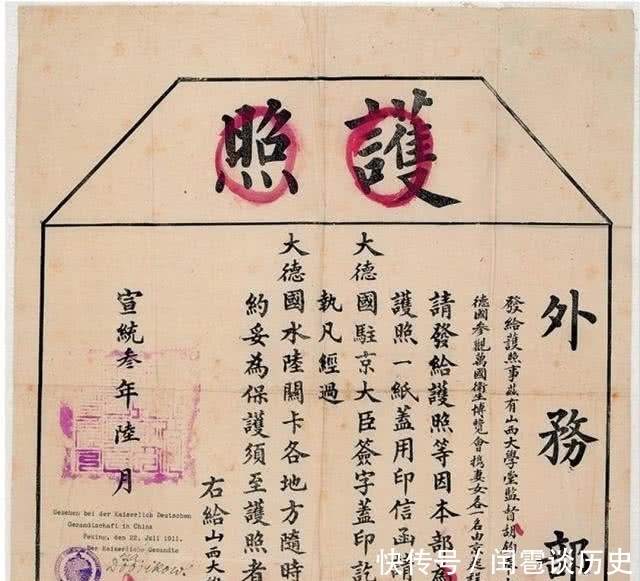 護照
外務部
發給護照事茲有山西大學堂監督胡
德國參觀萬國衛生博覽會携妻女各一名由京起程
請發給護照等因本部為
護照一紙蓋用印信函請
大德國駐京大臣簽字蓋印訖
執凡經過
大德國水陸關卡各地方隨時
約妥為保護須至護照者
右給山西大
宣統叁年陸月
Gesehen bei der Kaiserlich Deutschen
Gesandtschaft in China
Peking, den 22. Juli 1911.
Der Kaiserliche Gesandte
快传号/闰雹谈历史